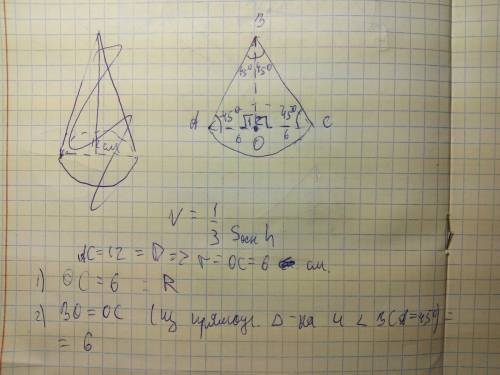 B
45° 45°
A 45° 12 45° C
6 O 6
12 см
V = 1/3 Sосн h
AC = 12 = D => r = OC = 6 см.
1) OC = 6 = R
2) BO = OC (из прямоуг. Δ-ка и < BCA = 45°) =
= 6